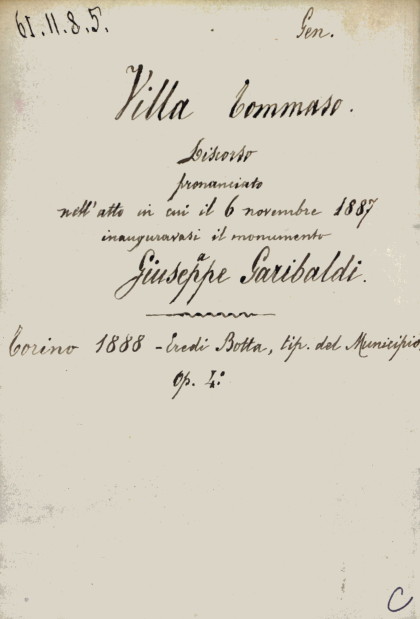 61.11.8.5.
Gen.
Villa Tommaso.
Discorso
pronunciato
nell'atto in cui il 6 novembre 1887
inauguravasi il monumento
a
Giuseppe Garibaldi.
Torino 1888 - Eredi Botta, tip. del Municipio
op. 4.º
C